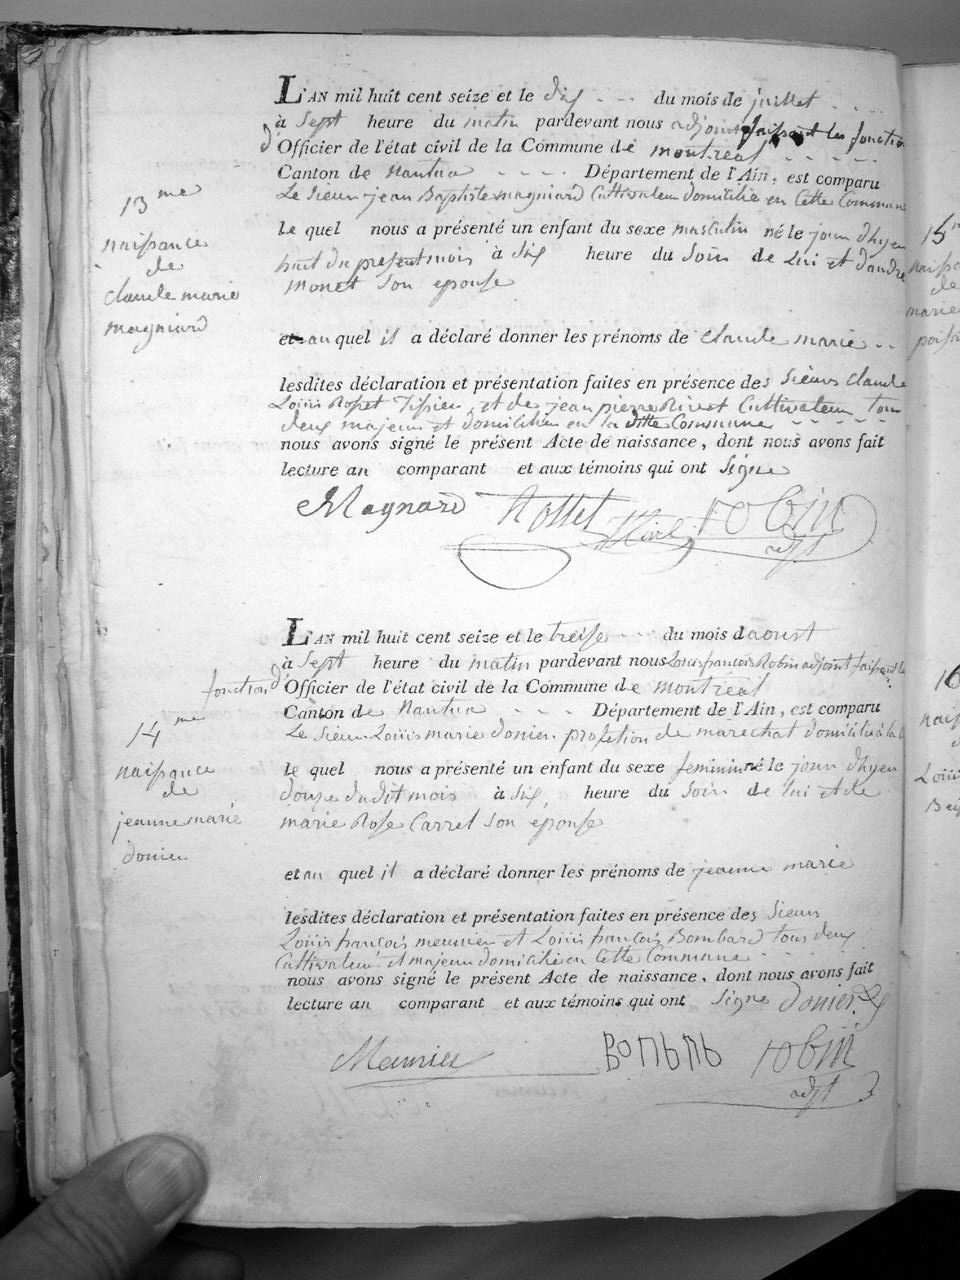 L'AN mil huit cent seize et le dix du mois de juillet
à Sept heure du matin pardevant nous adjoint faisant les fonction
d'Officier de l'état civil de la Commune de montreal
Canton de Nantua Département de l'Ain, est comparu
Le Sieur jean Baptiste magniard Cultivateur domicilié en Cette Commune
13me
le quel nous a présenté un enfant du sexe masculin né le jour d'hyer
naissance
huit du present mois à Six heure du Soir de Lui et d'andre
de
monet Son epouse
claude marie
magniard
et au quel il a déclaré donner les prénoms de claude marie
lesdites déclaration et présentation faites en présence des Sieurs Claude
Louis Rosset et de jean pierre Cultivateur tous
deux majeur et domiciliés en la ditte Commune
nous avons signé le présent Acte de naissance, dont nous avons fait
lecture au comparant et aux témoins qui ont Signe
Magnard Rosset robin
adjt
L'AN mil huit cent seize et le treise du mois d'aoust
à Sept heure du matin pardevant nous Louis françois Robin adjoint faisant la
fonction d'Officier de l'état civil de la Commune de montreal
Canton de Nantua Département de l'Ain, est comparu
14me
Le Sieur Louis marie donier profetion de marechat domicilié à la
le quel nous a présenté un enfant du sexe feminin né le jour d'hyer
naissance
de
douze dudit mois à Six heure du Soir de lui et de
jeanne marie
marie Rose Carret Son epouse
donier
et au quel il a déclaré donner les prénoms de jeanne marie
lesdites déclaration et présentation faites en présence des Sieurs
Louis françois meunier et Louis françois Bombard tous deux
Cultivateur et majeur domicilié en Cette Commune
nous avons signé le présent Acte de naissance, dont nous avons fait
lecture au comparant et aux témoins qui ont Signe donier
Meunier robin
adjt
15m
naissa
de
marie
16
naiss
Louis